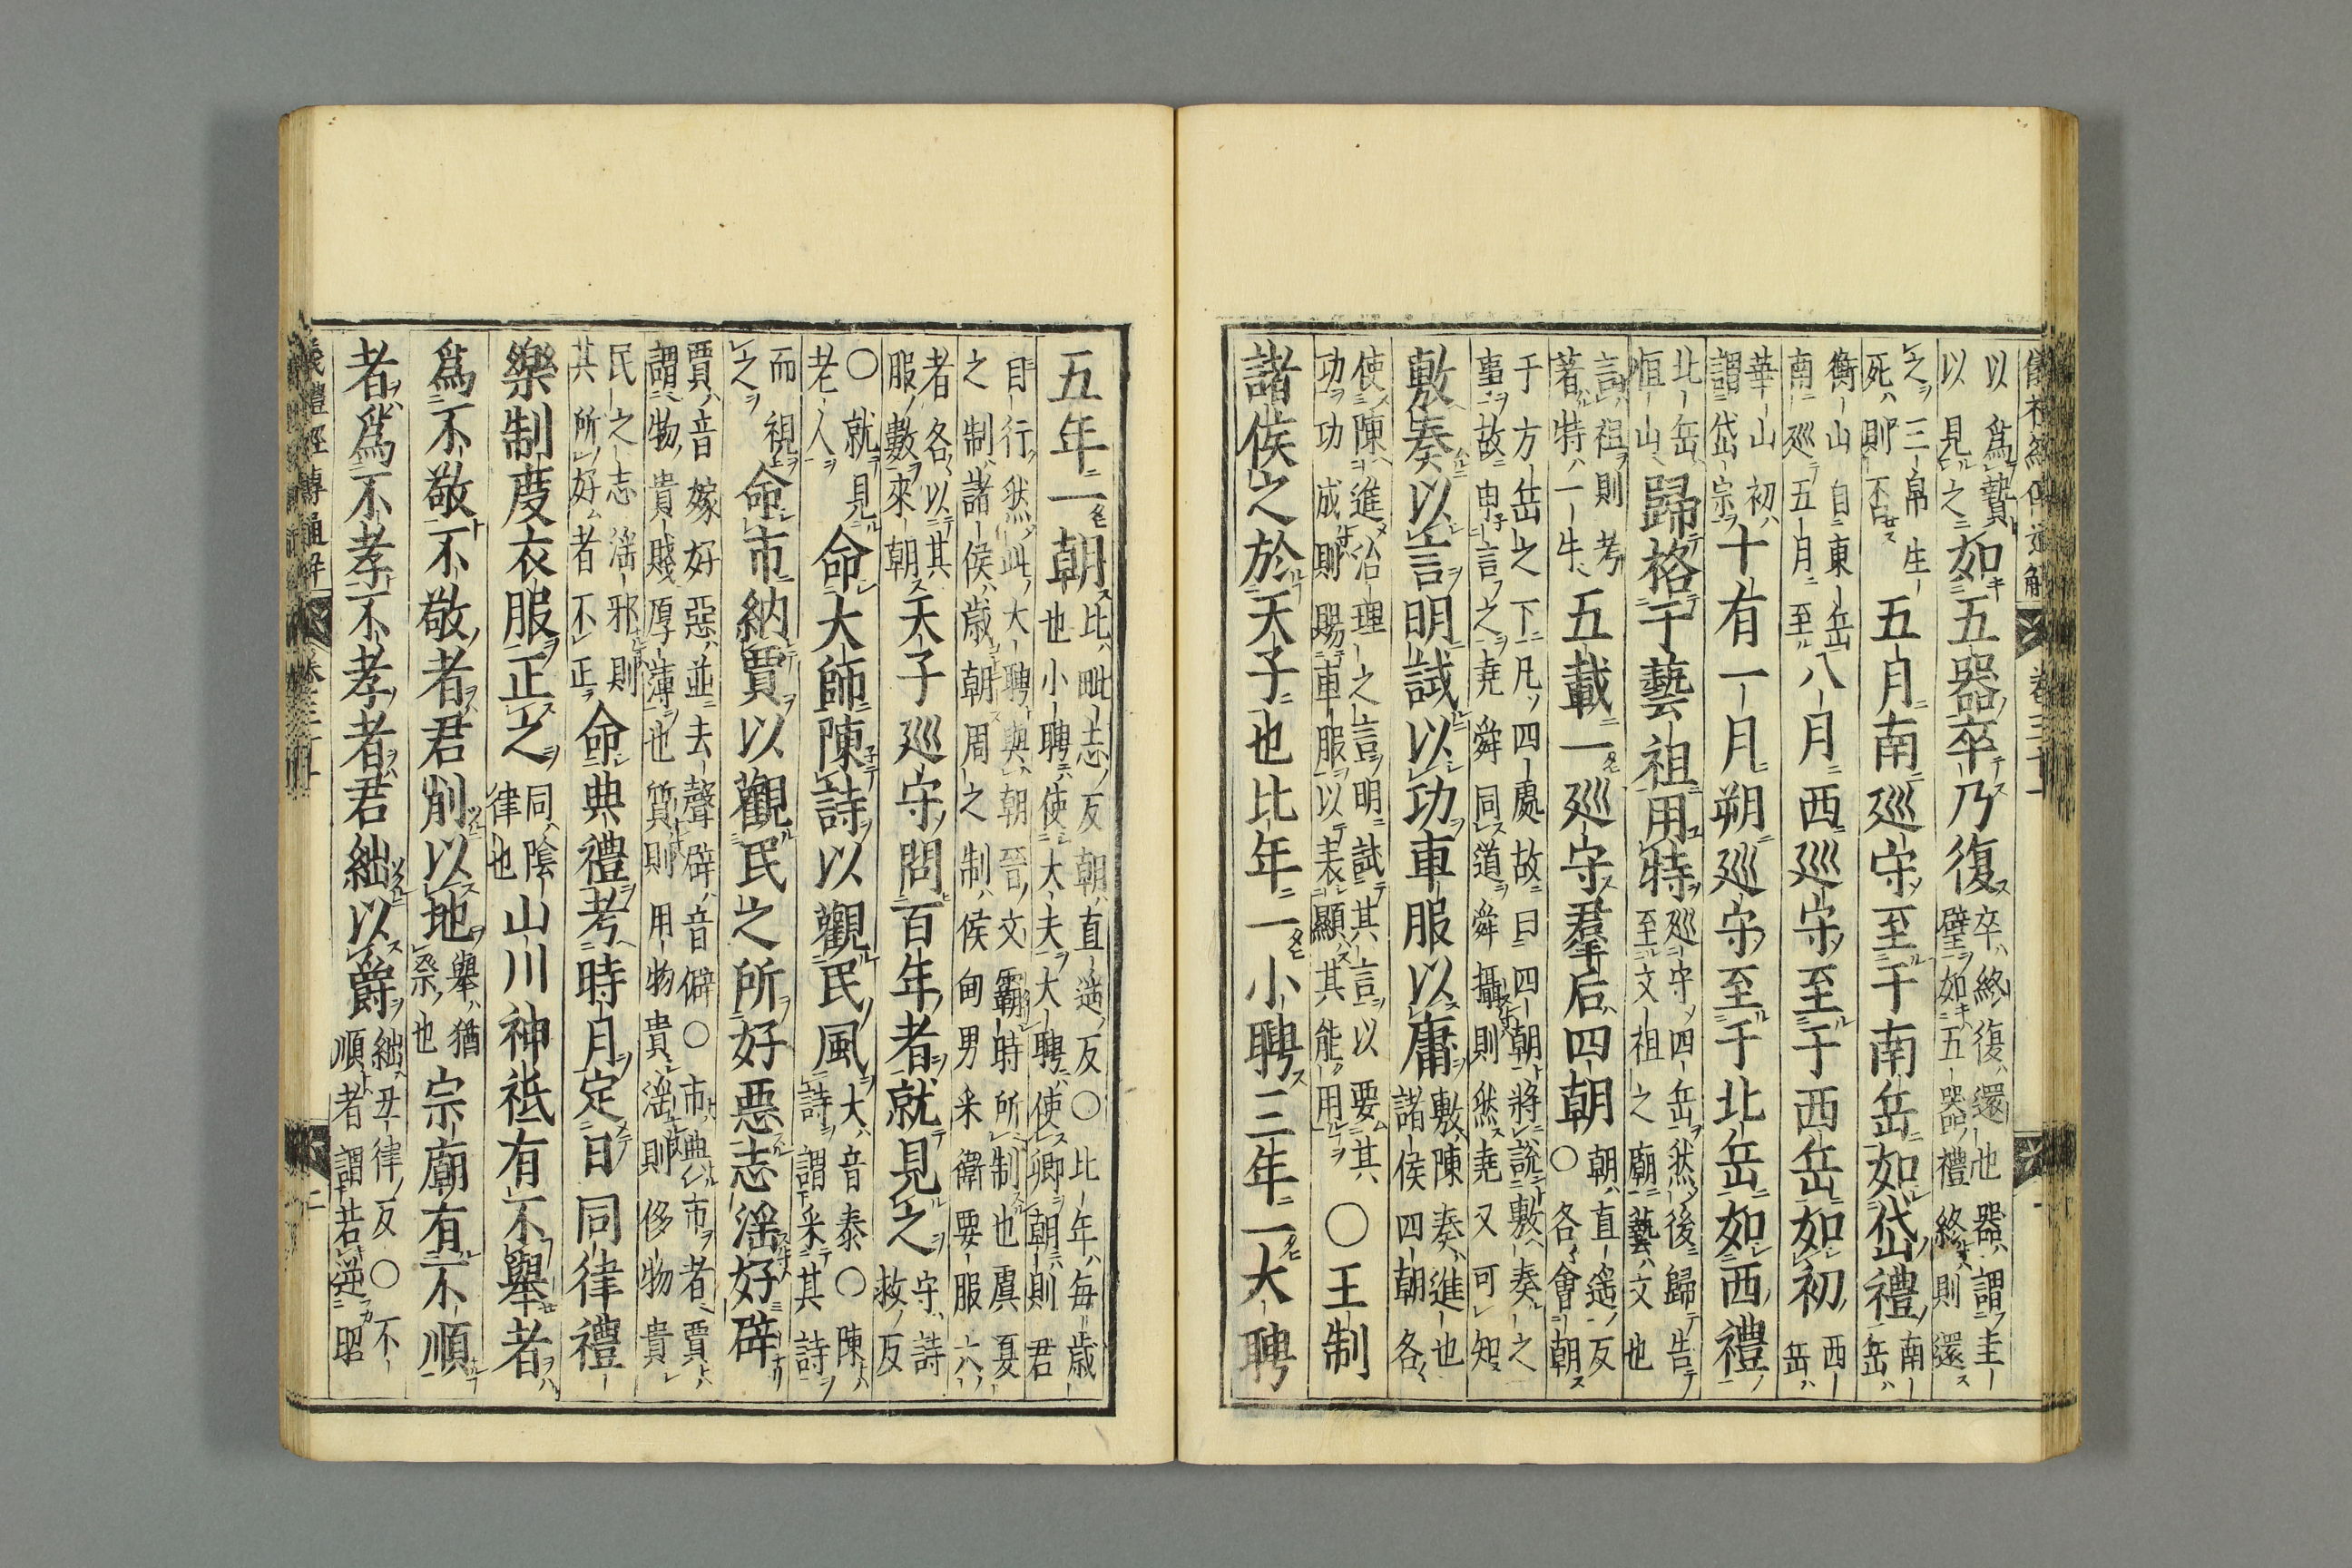 儀禮經傳通解 卷三十
以爲贄以見之如五器卒乃復卒終復還也器謂圭璧如五器禮終則還
之三帛生死則否五月南巡守至于南岳如岱禮南岳
衡山自東岳南巡五月至八月西巡守至于西岳如初西岳
華山初謂岱宗十有一月朔巡守至于北岳如西禮
北岳恒山歸格于藝祖用特巡守四岳然後歸告至文祖之廟藝文也
言祖則考著特一牛五載一巡守羣后四朝朝直遙反○各會朝
于方岳之下凡四處故曰四朝將說敷奏之事故申言之堯舜同道舜攝則然堯又可知
敷奏以言明試以功車服以庸敷陳奏進也諸侯四朝各
使陳進治理之言明試其言以要其功功成則賜車服以表顯其能用○王制
諸侯之於天子也比年一小聘三年一大聘
五年一朝比毗志反朝直遙反○比年每歲也小聘使大夫大聘使卿朝則君
自行然此大聘與朝晉文霸時所制也虞夏之制諸侯歲朝周之制侯甸男采衛要服六
者各以其服數來朝天子巡守問百年者就見之守詩救反
○就見老人命大師陳詩以觀民風大音泰○陳詩謂采其詩
而視之命市納賈以觀民之所好惡志淫好辟
賈音嫁好惡並去聲辟音僻○市典市者賈謂物貴賤厚薄也質則用物貴淫則侈物貴
民之志淫邪則其所好者不正命典禮考時月定日同律禮
樂制度衣服正之同陰律也山川神祇有不舉者
爲不敬不敬者君削以地舉猶祭也宗廟有不順
者爲不孝不孝者君絀以爵絀丑律反○不順者謂若逆昭
儀禮經傳通解 二